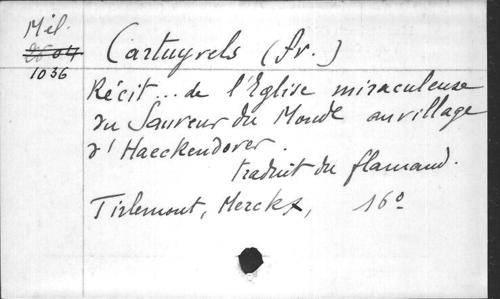 Mél.
1036
Cartuyvels (Fr.)
Récit... de l'Eglise miraculeuse
du Sauveur du Monde au village
d'Haeckendover.
traduit du flamand.
Tirlemont, Merckx, 16°